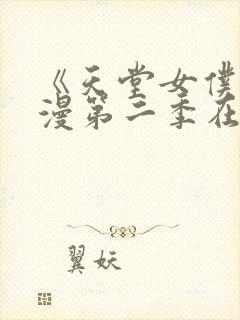 《天堂女仆
漫第二季在
翼妖